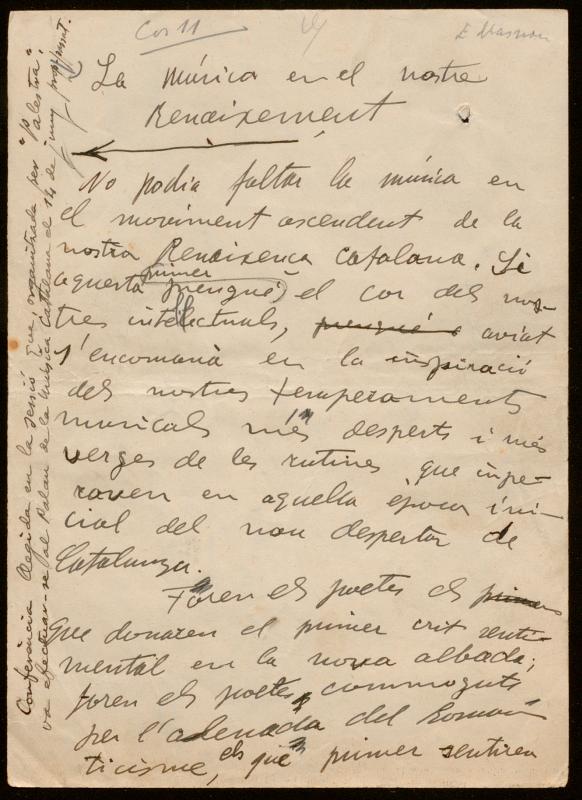 Cos 11
La música en el nostre
Renaixement
No podia faltar la música en
el moviment ascendent de la
nostra Renaixença catalana. Si
aquesta primer prengué el cor dels nos-
tres intel·lectuals, prengué aviat
s'encomanà en la inspiració
dels nostres temperaments
musicals més desperts i més
verges de les rutines que impe-
raven en aquella època ini-
cial del nou despertar de
Catalunya.
Foren els poetes els primers
que donaren el primer crit senti-
mental en la nova albada;
foren els poetes, commoguts
per l'alenada del Roman-
ticisme, els que primer sentiren
Conferència llegida en la sessió que, organitzada per "Palestra",
va efectuar-se al Palau de la Música Catalana el 14 de juny proppassat.